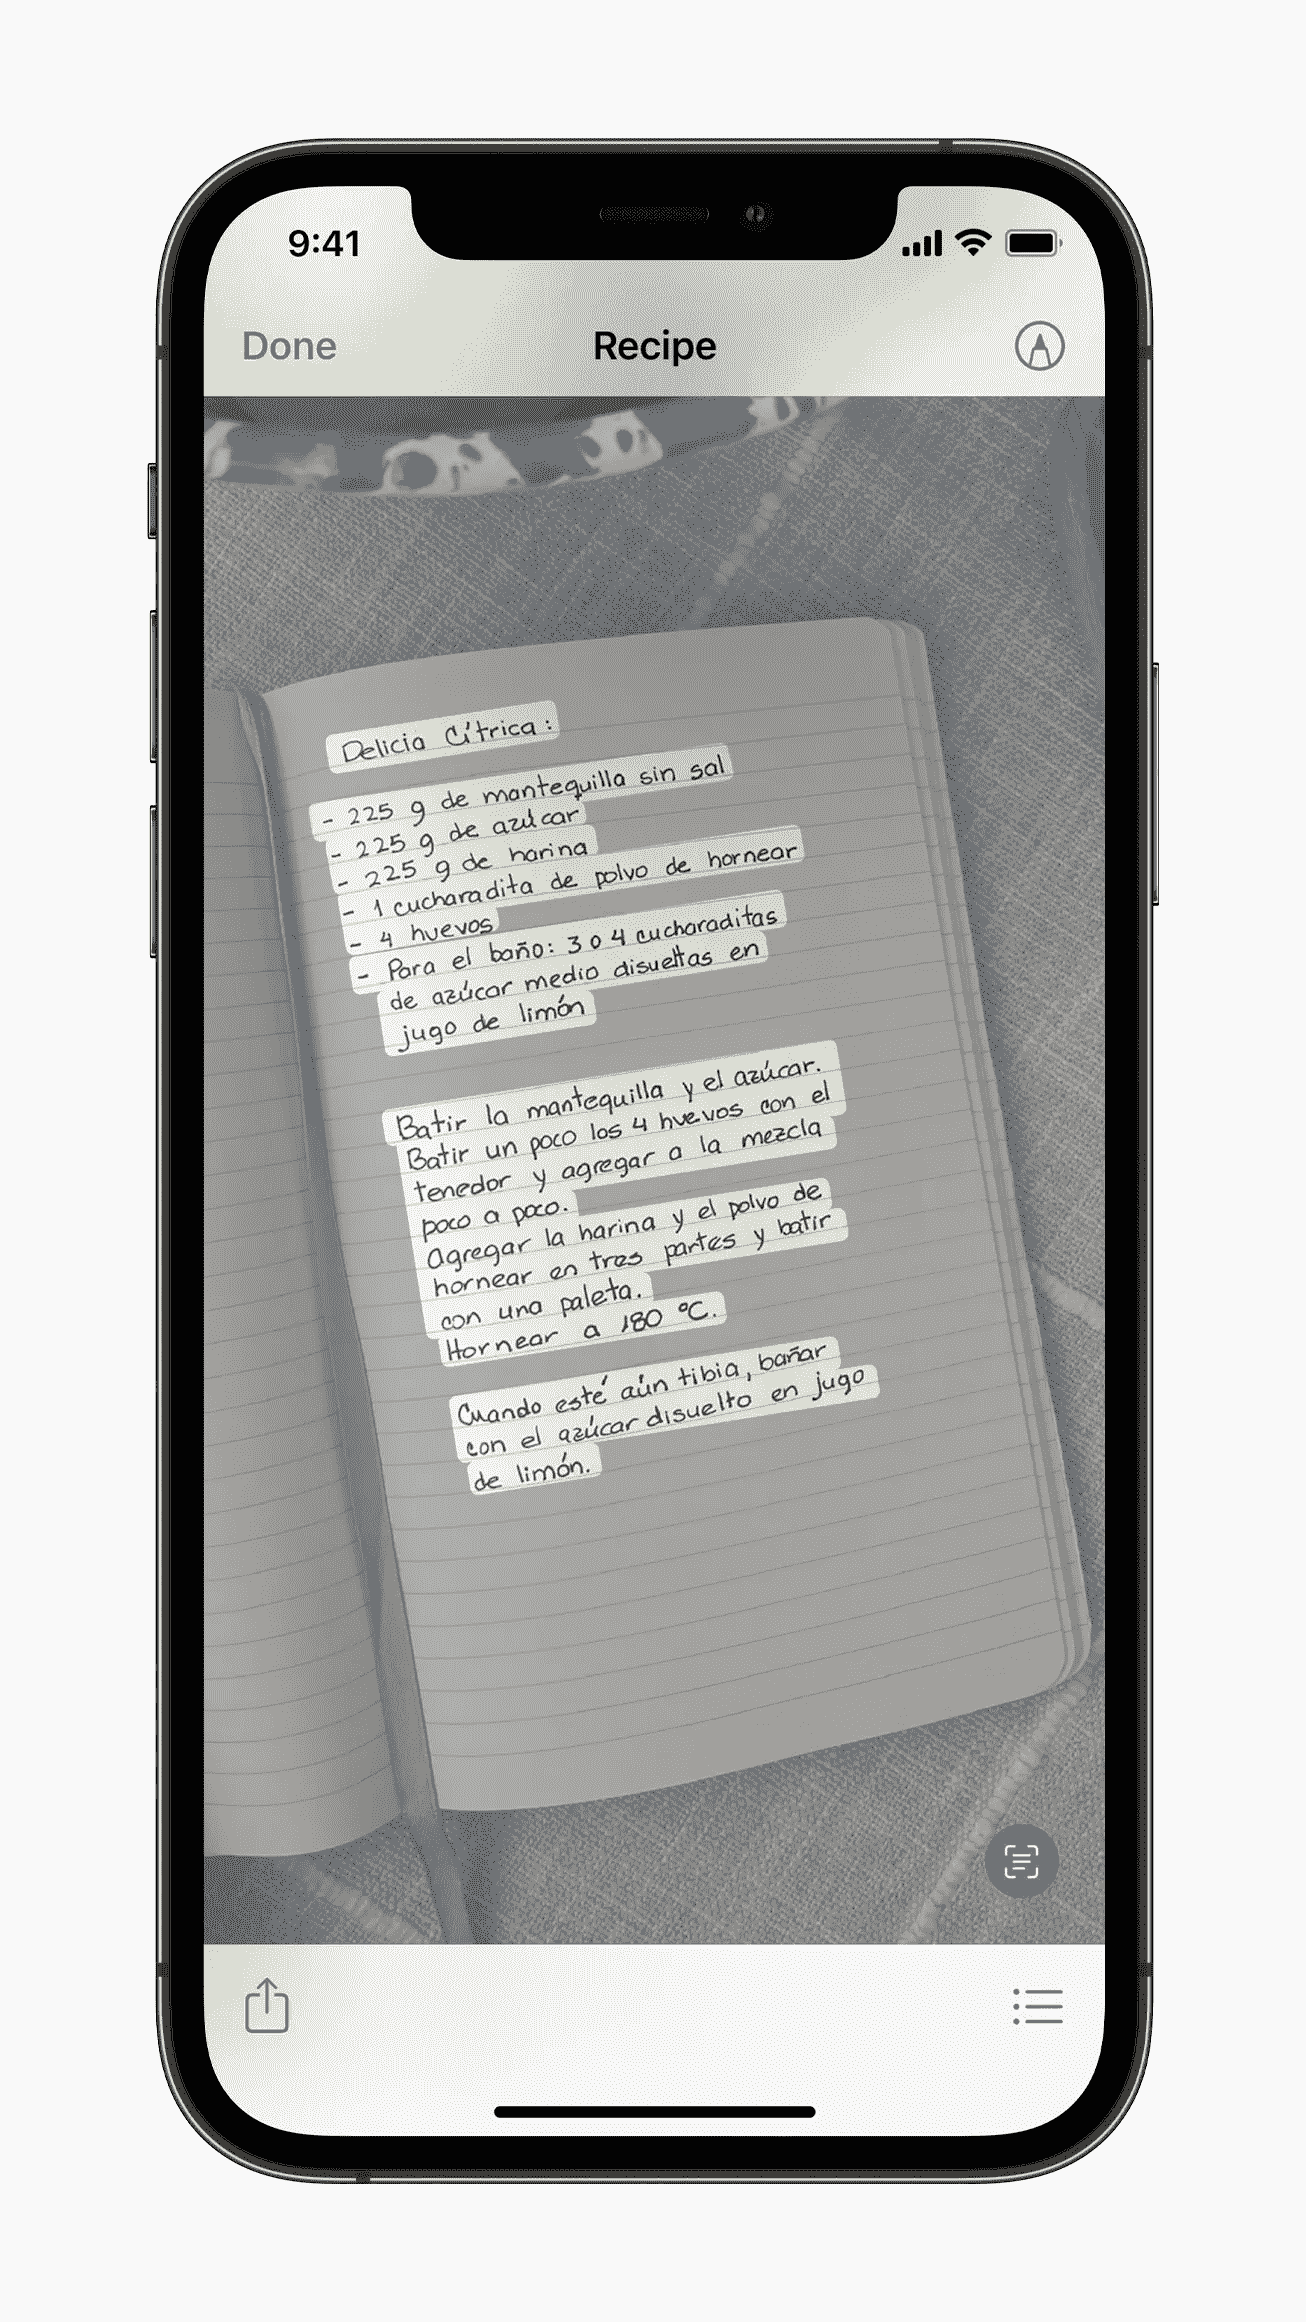 9:41
Done
Recipe
Delicia Cítrica:
- 225 g de mantequilla sin sal
- 225 g de azúcar
- 225 g de harina
- 1 cucharadita de polvo de hornear
- 4 huevos
- Para el baño: 3 o 4 cucharaditas
de azúcar medio disueltas en
jugo de limón
Batir la mantequilla y el azúcar.
Batir un poco los 4 huevos con el
tenedor y agregar a la mezcla
poco a poco.
Agregar la harina y el polvo de
hornear en tres partes y batir
con una paleta.
Hornear a 180 °C.
Cuando esté aún tibia, bañar
con el azúcar disuelto en jugo
de limón.